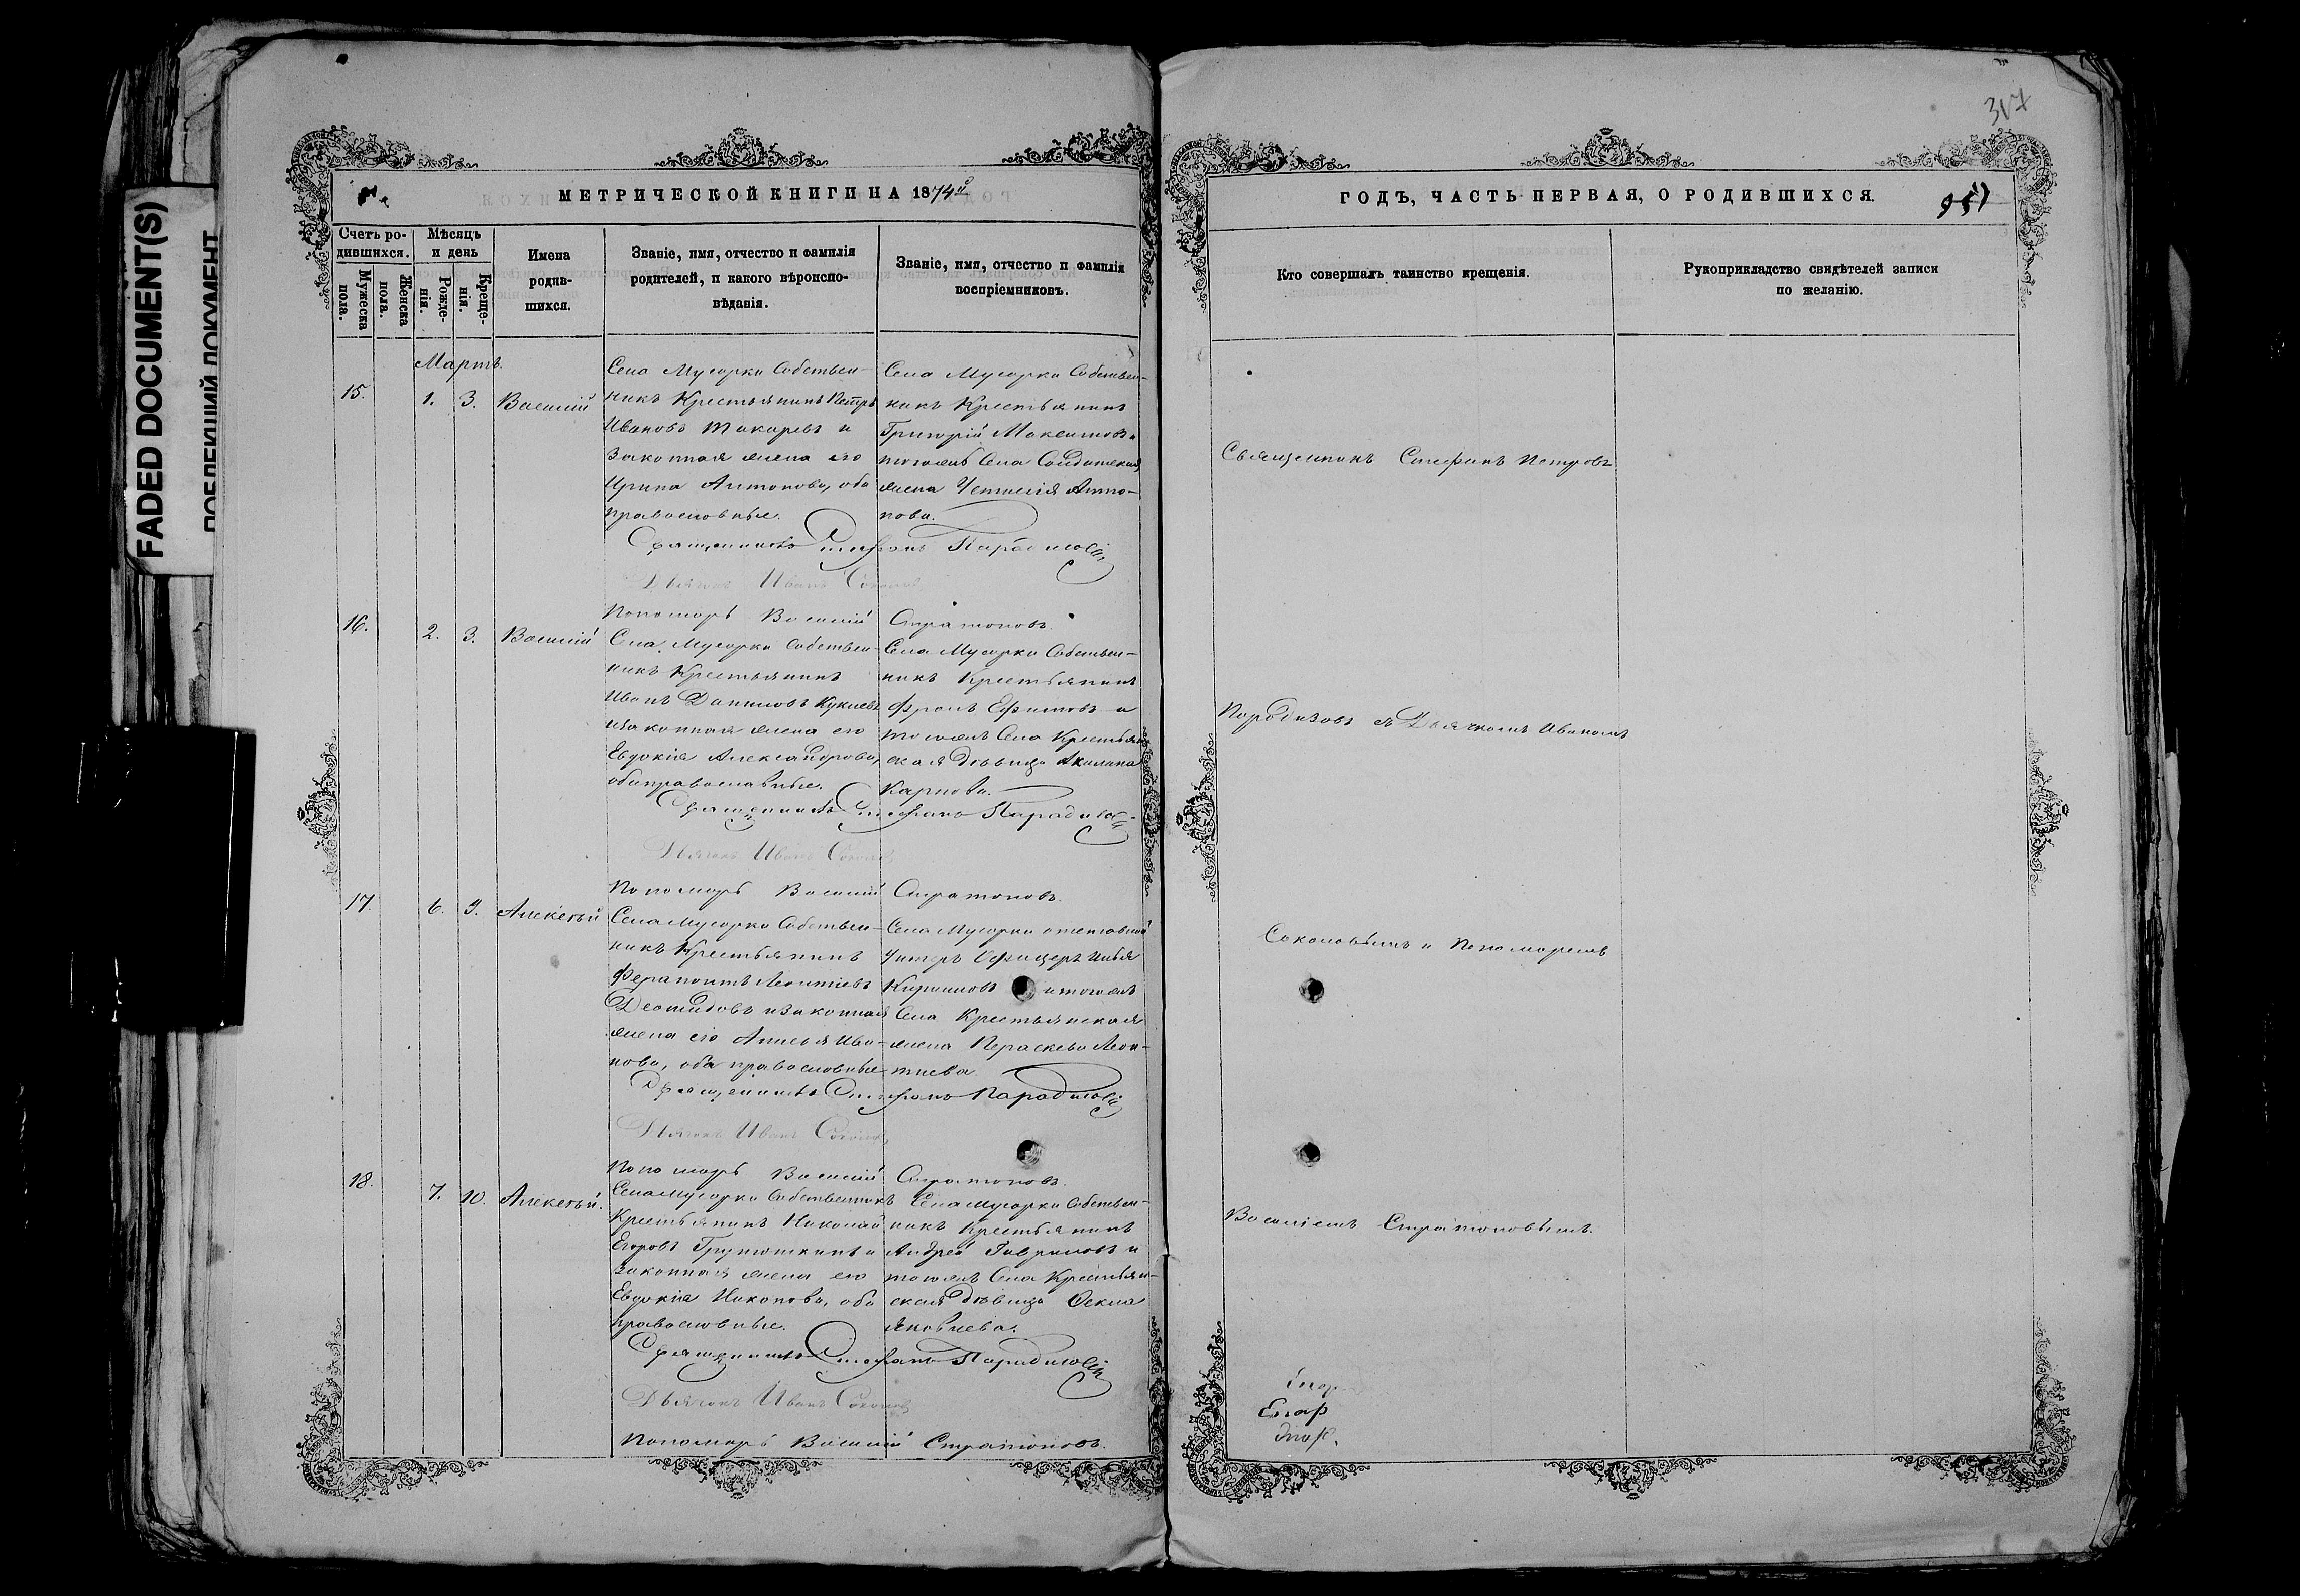 317
FADED DOCUMENT(S)
ПОБЛЕКШИЙ ДОКУМЕНТ
МЕТРИЧЕСКОЙ КНИГИ НА 1874й
ГОДЪ, ЧАСТЬ ПЕРВАЯ, О РОДИВШИХСЯ.
Счетъ ро-
дившихся.
Мужеска
пола.
Женска
пола.
Мѣсяцъ
и день
Рожде-
нія.
Креще-
нія.
Имена
родив-
шихся.
Званіе, имя, отчество и фамилія
родителей, и какого вѣроиспо-
вѣданія.
Званіе, имя, отчество и фамилія
воспріемниковъ.
Кто совершалъ таинство крещенія.
Рукоприкладство свидѣтелей записи
по желанію.
Мартъ.
15. 1. 3. Василій
Села Мусорки Собствен-
никъ Крестьянинъ Петръ
Ивановъ Токаревъ и
Законная жена его
Ирина Антонова, оба
православные.
Села Мусорки Собствен-
никъ Крестьянинъ
Григорій Максимовъ и
тогожъ Села Солдатская
жена Антo-
нова.
Священникъ Стефанъ Парадизовъ
Дьячокъ Иванъ Соколовъ
Пономарь Василій Стратоновъ.
16. 2. 3. Василій
Села Мусорки Собствен-
никъ Крестьянинъ
Иванъ Даниловъ Куклевъ
и законная жена его
Евдокія Александрова,
оба православные.
Села Мусорки Собствен-
никъ Крестьянинъ
Фролъ Ефимовъ и
тогожъ Села Крестьян-
ская дѣвица Акилина
Карпова.
Священникъ Стефанъ Парадизовъ
Дьячокъ Иванъ Соколовъ
Пономарь Василій Стратоновъ.
17. 6. 9. Алексѣй
Села Мусорки Собствен-
никъ Крестьянинъ
Ферапонтъ Леонтіевъ
Деомидовъ и законная
жена его Анисья Ива-
нова, оба православные
Села Мусорки отставной
Унтеръ Офицеръ Илья
Кириловъ и тогожъ
Села Крестьянская
жена Параскева Леон-
тиева.
Священникъ Стефанъ Парадизовъ
Дьячокъ Иванъ Соколовъ
Пономарь Василій Стратоновъ.
18. 7. 10. Алексѣй.
Села Мусорки Собственникъ
Крестьянинъ Николай
Егоровъ Грунюшкинъ и
законная жена его
Евдокія Никонова, оба
православные.
Села Мусорки Собствен-
никъ Крестьянинъ
Андрей Гавриловъ и
тогожъ Села Крестьян-
ская дѣвица Фекла
Яковлева.
Священникъ Стефанъ Парадизовъ
Дьячокъ Иванъ Соколовъ
Пономарь Василій Стратоновъ.
Священникъ Стефанъ Петровъ
Парадизовъ съ Дьячкомъ Иваномъ
Соколовымъ и Пономаремъ
Василіемъ Стратоновымъ.